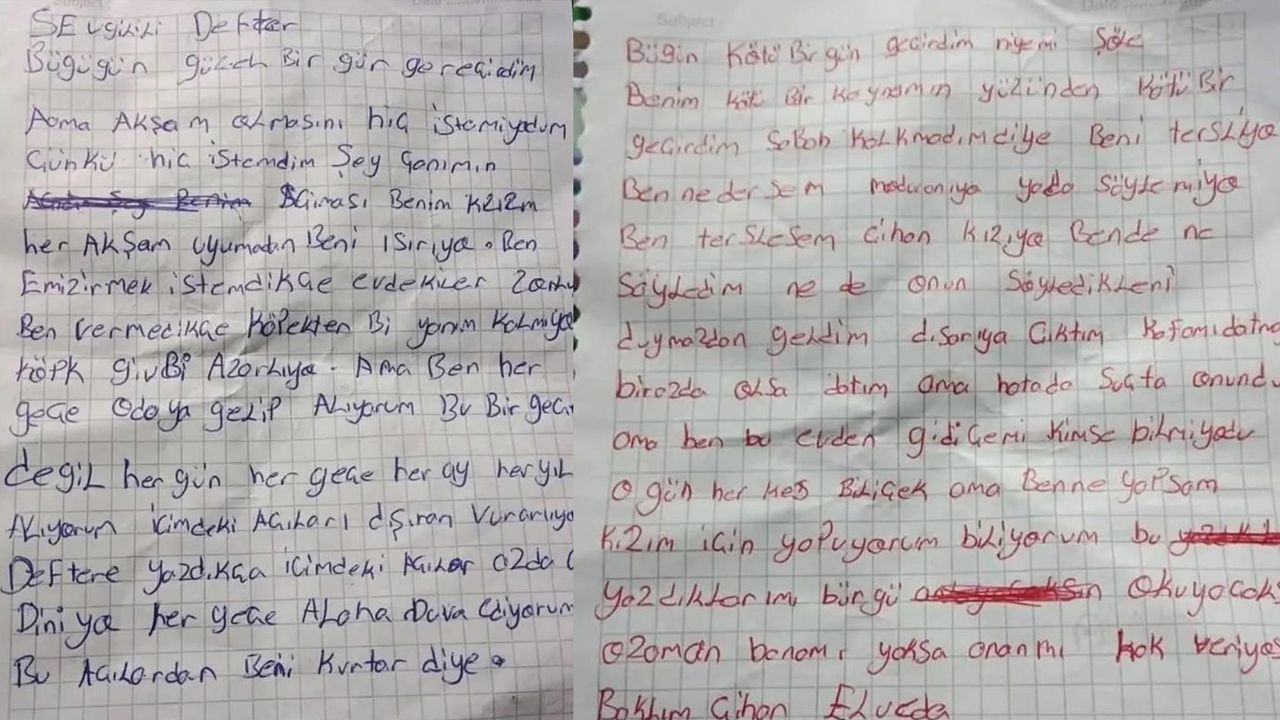 SEvgilili Defter
Bügügün güzel Bir gün gereçidim
Aama AKşam olmasını hiç istemiyodum
Çünkü hiç istemdim Şey Canımın
Acıması Benim Kızım
her AKşam uyumadan Beni ısırıya. Ben
Emizirmek istemdikçe evdekiler
Ben vermedikçe Köpekten Bi yanım Kalmiya
Köpk givBi Azarlıya. Ama Ben her
geçe Odaya gelip ALıyorum Bu Bir
degiL her gün her geçe her ay her yıL
ALıyorum içimdeki Açıları dışıran
Deftere yazdıkça içimdeki Açılar azda
Diniya her geçe ALaha Duva Ediyorum
Bu Açılardan Beni Kurtar diye.
Subject:
Bügin Kötü Bir gün geçirdim niyemi Şöle
Benim Kötü Bir Kaynamın yüzünden Kötü Bir
geçirdim Sabah KaLkmadım diye Beni tersLiya
Ben ne dersem yada Söylemiya
Ben tersLesem Cihan Kızıya Bende ne
Söyledim ne de onun Söyledikleni
duymazdan geldim dışarıya Çıktım
birazda oLsa ama hatada Suçta
ama ben bu evden gidiçemi Kimse bilmiyadu
O gün her Kes Biliçek ama Ben ne yapsam
Kızım için yapıyorum biliyorum bu
yazdıkLarımı bürgü Okuyacak
Ozaman banamı yoksa onanmı hak
Bakhım Cihan ELveda